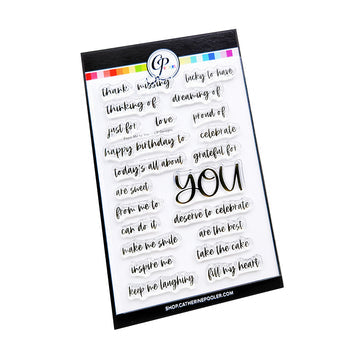 CP
thank missing lucky to have
thinking of dreaming of
just for love proud of
happy birthday to celebrate
today's all about grateful for
are sweet YOU
from me to
can do it deserve to celebrate
make me smile are the best
inspire me take the cake
keep me laughing fill my heart
SHOP.CATHERINEPOOLER.COM